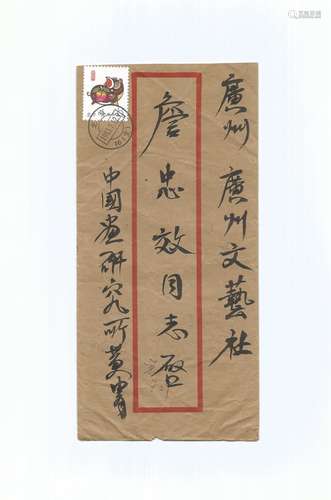 廣州 廣州文藝社
詹忠效同志啓
中国画研究所黄胄